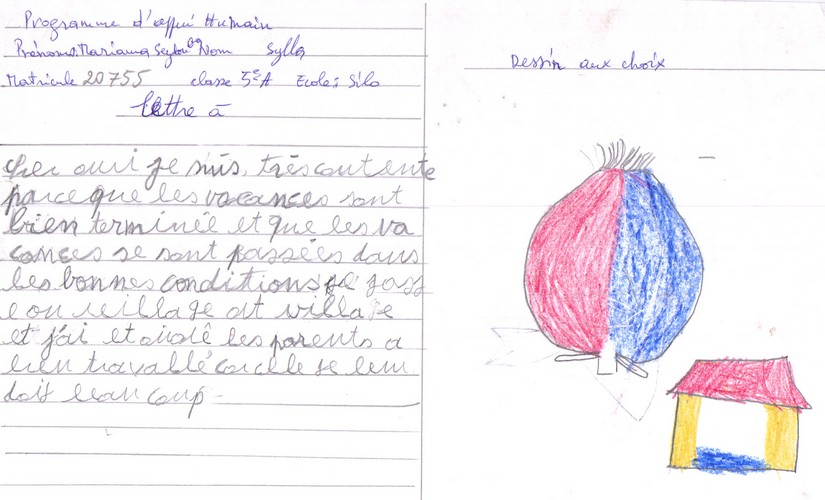 Programme d'appui Humain
Prénoms: Mariama Seydou Nom Sylla
Matricule 20755 classe 5è A Ecole: Silo
lettre à
cher ami je suis très contente
parce que les vacances sont
bien terminée et que les va
cances se sont passées dans
les bonnes conditions je
village
et j'ai et aidé les parents a
bien travaillé car cele je leur
doit beaucoup
Dessin aux choix